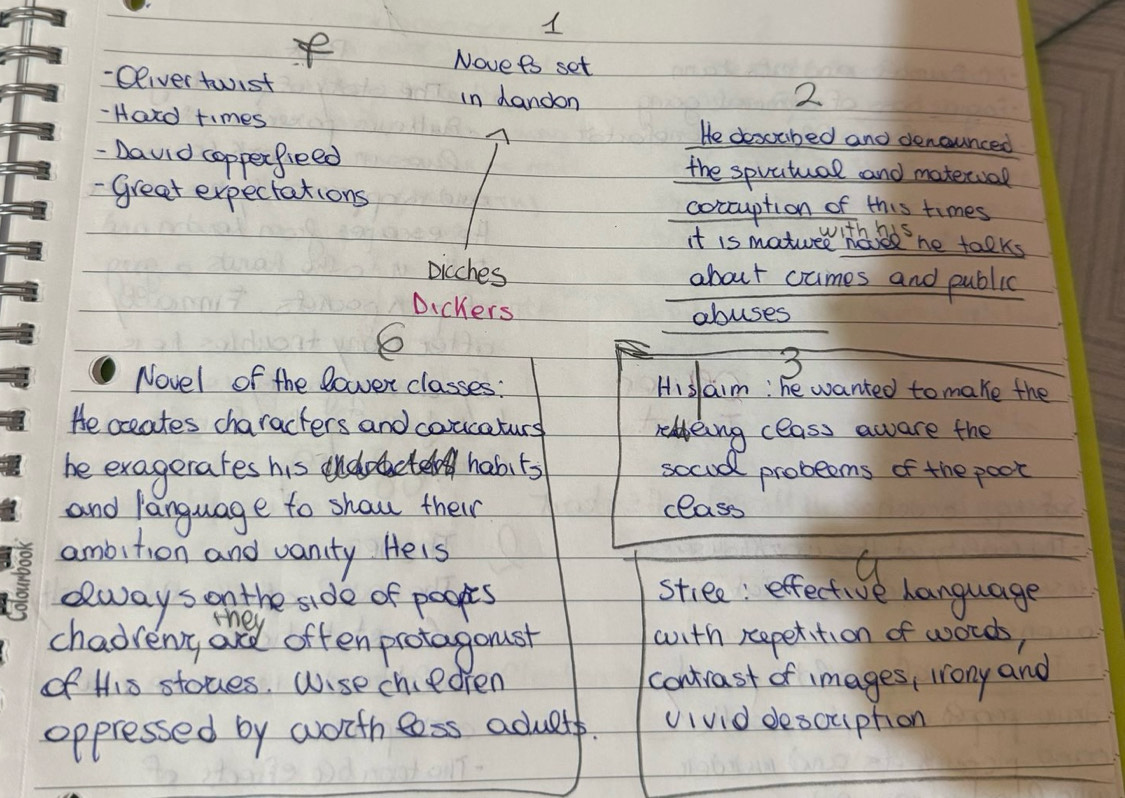 1
Novels set
in London
7
-Oliver twist
-Hard times
-David copperfield
-Great expectations
2
He described and denounced
the spiritual and material
corruption of this times
it is mature novel with his he talks
about crimes and public
abuses
Dicches
Dickers
6
Novel of the lower classes:
He creates characters and caricaturs
he exagerates his habits
and language to show their
ambition and vanity He is
always on the side of poors
they are often protagonist
of His stories. Wise children
oppressed by worth less adults.
3
His aim: he wanted to make the
class aware the
social problems of the poor
class
Stile: effective language
with repetition of words,
contrast of images, irony and
vivid description
Colourbook